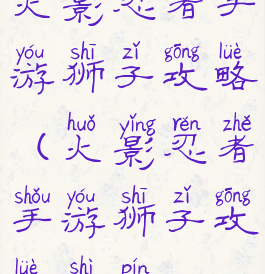 火影忍者手
yóu shī zǐ gōng lüè
游狮子攻略
huǒ yǐng rěn zhě
（火影忍者
shǒu yóu shī zǐ gōng
手游狮子攻
lüè shì pín